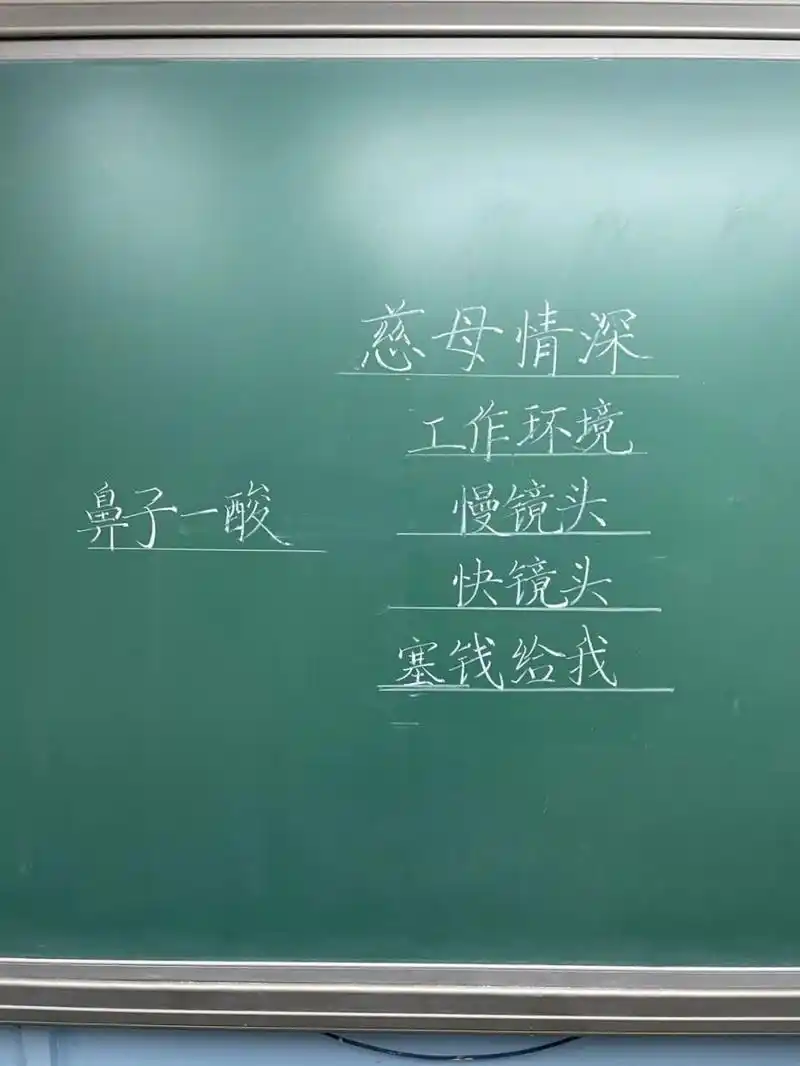 慈母情深
工作环境
鼻子一酸
慢镜头
快镜头
塞钱给我